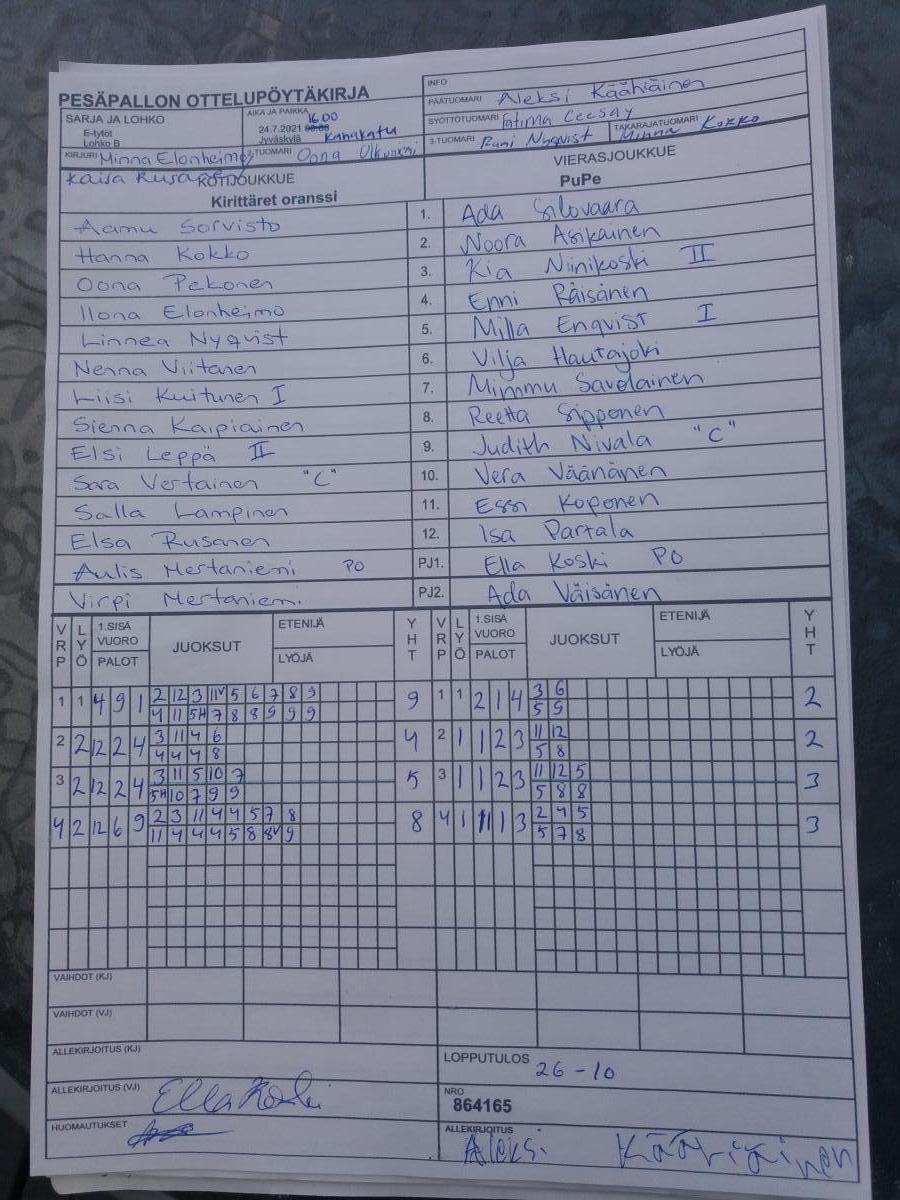 PESÄPALLON OTTELUPÖYTÄKIRJA
INFO
PÄÄTUOMARI Aleksi Kääriäinen
SARJA JA LOHKO
E-tytöt
Lohko B
AIKA JA PAIKKA 16.00
24.7.2021
Jyväskylä Kanakatu
SYÖTTÖTUOMARI Fatima Ceesay
3-TUOMARI Rami Nyqvist TAKARAJATUOMARI Minna Kokko
KIRJURI Minna Elonheimo 2-TUOMARI Oona
Kaisa Rusanen
KOTIJOUKKUE
Kirittäret oranssi
VIERASJOUKKUE
PuPe
Aamu Sorvisto 1. Ada Silovaara
Hanna Kokko 2. Noora Asikainen
Oona Pekonen 3. Kia Niinikoski II
Ilona Elonheimo 4. Enni Räisänen
Linnea Nyqvist 5. Milla Enqvist I
Nenna Viitanen 6. Vilja Hautajoki
Liisi Kuitunen I 7. Mimmu Savolainen
Sienna Kaipiainen 8. Reetta Sipponen
Elsi Leppä II 9. Judith Nivala "C"
Sara Vertainen "C" 10. Vera Väänänen
Salla Lampinen 11. Essi Koponen
Elsa Rusanen 12. Isa Partala
Aulis Mertaniemi PO PJ1. Ella Koski PO
Virpi Mertaniemi PJ2. Ada Väisänen
VRP LYÖ 1.SISÄ VUORO PALOT JUOKSUT ETENIJÄ LYÖJÄ YHT VRP LYÖ 1.SISÄ VUORO PALOT JUOKSUT ETENIJÄ LYÖJÄ YHT
1 1 4 9 1 2 12 3 11V 5 6 7 8 9 9 1 1 2 1 4 3 6 2
4 11 5H 7 8 8 9 9 9 5 9
2 2 12 2 4 3 11 4 6 4 2 1 1 2 3 11 12 2
4 4 4 8 5 8
3 2 12 2 4 3 11 5 10 7 5 3 1 1 2 3 11 12 5 3
5H 10 7 9 9 5 8 8
4 2 12 6 9 2 3 11 4 4 5 7 8 8 4 1 11 1 3 2 4 5 3
11 4 4 4 5 8 8V 9 5 7 8
VAIHDOT (KJ)
VAIHDOT (VJ)
ALLEKIRJOITUS (KJ)
LOPPUTULOS 26-10
ALLEKIRJOITUS (VJ) Ella Koski
NRO
864165
HUOMAUTUKSET
ALLEKIRJOITUS
Aleksi Kääriäinen